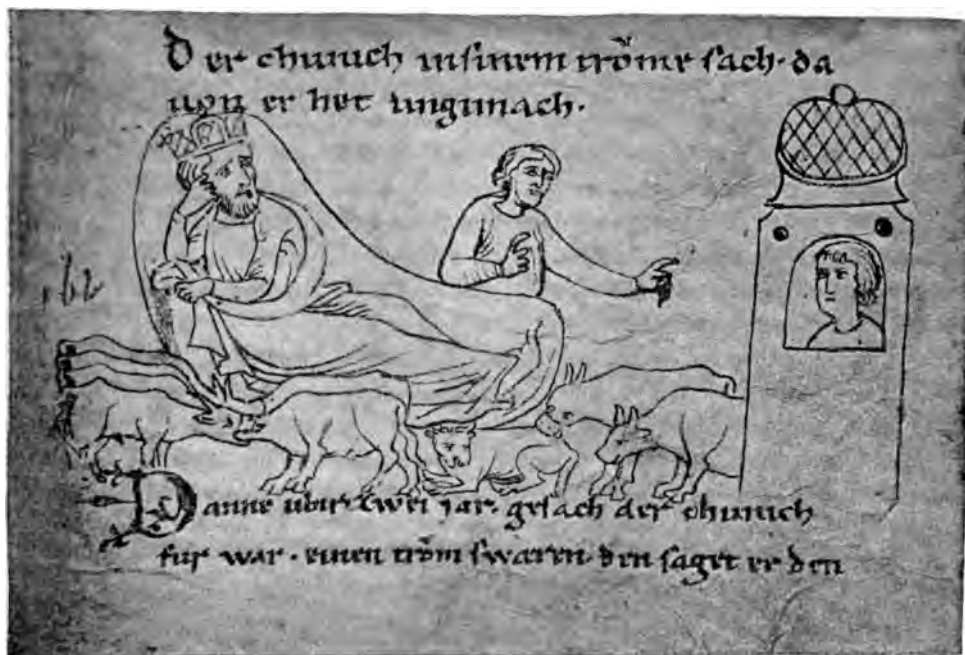 Der chunich insinem trŏme sach· da
uon er het ungimach·
Danne ubir zwei iar· gesach der chunich
fur war· einen trŏm swaren· den saget er den